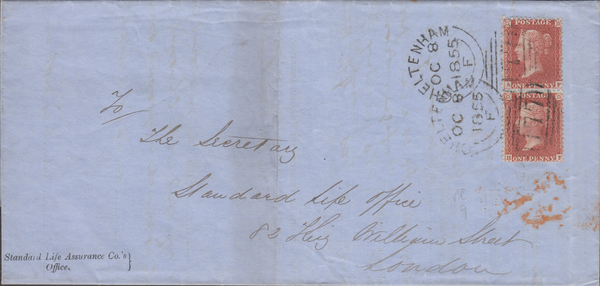 CHELTENHAM
OC 8
1855
F
CHELTENHAM
OC 8
1855
F
POSTAGE
ONE PENNY
POSTAGE
ONE PENNY
177
To
The Secretary
Standard Life Office
82 King William Street
London
Standard Life Assurance Co.'s
Office.